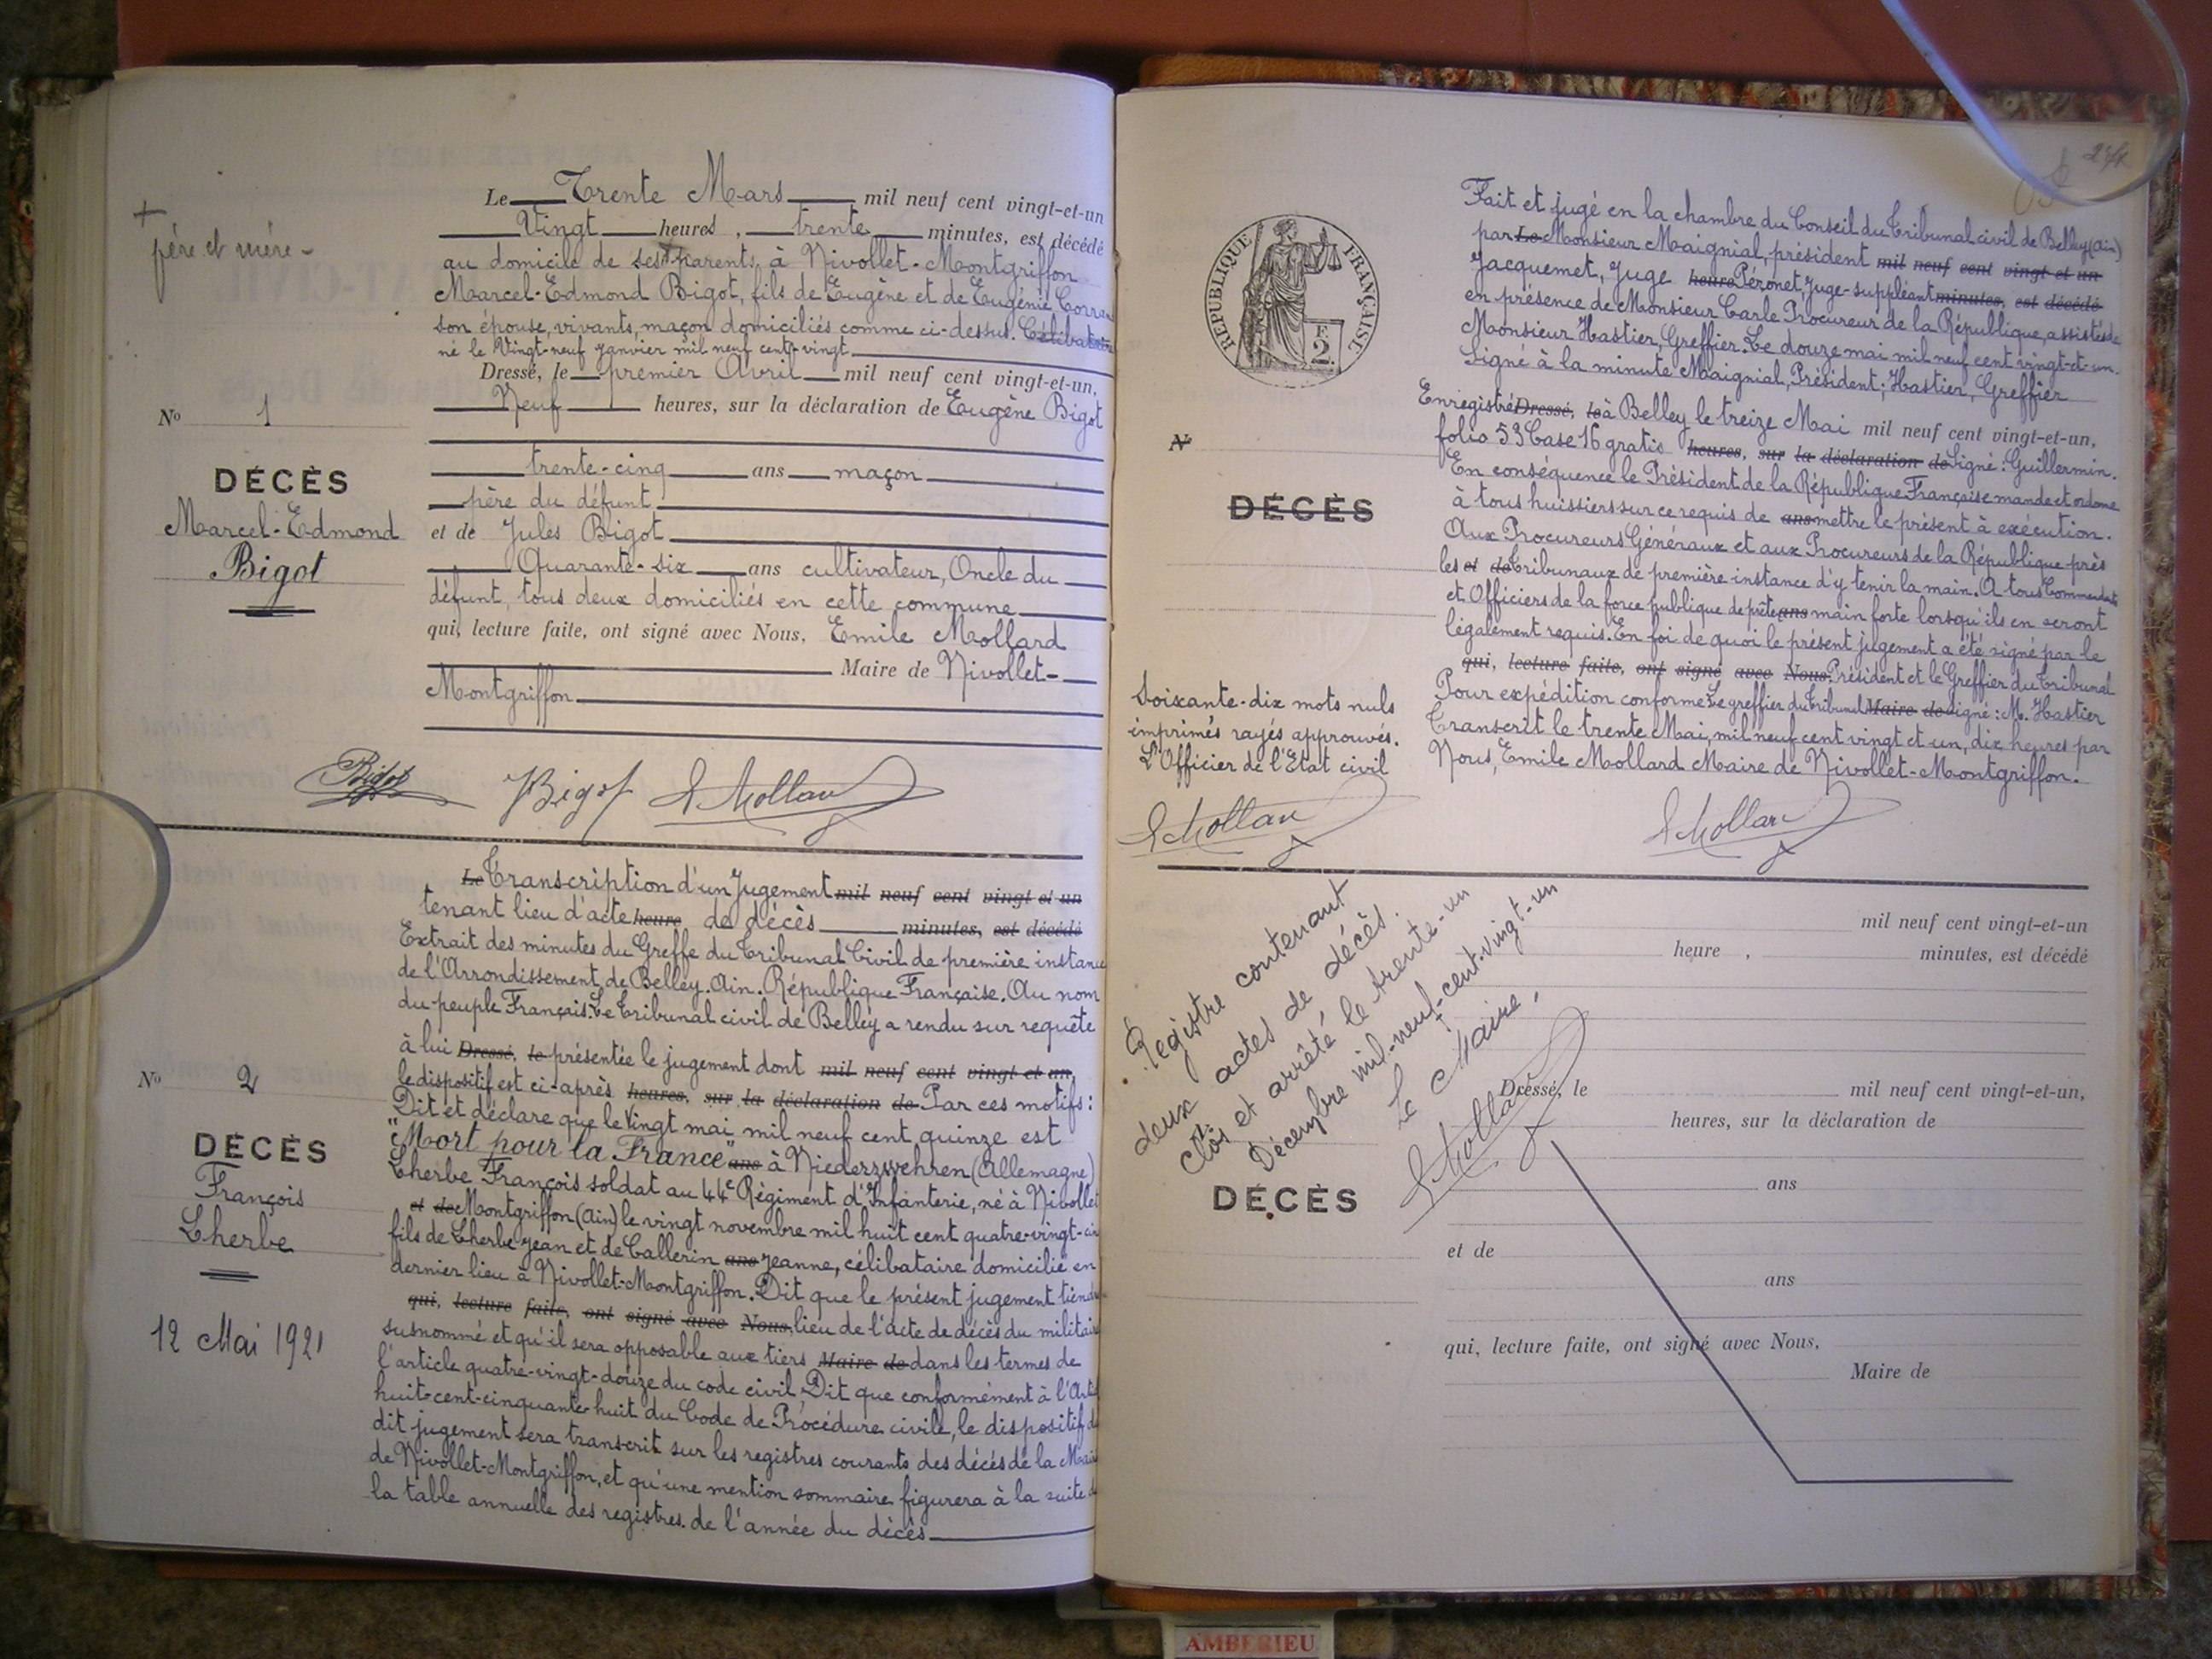 +
père et mère -
Le Trente Mars mil neuf cent vingt-et-un
Vingt heures, trente minutes, est décédé
au domicile de ses Parents, à Nivollet-Montgriffon
Marcel-Edmond Bigot, fils de Eugène et de Eugénie
son épouse, vivants, maçon domiciliés comme ci-dessus. Célibataire
né le Vingt-neuf Janvier mil neuf cent-vingt
Dressé, le premier Avril mil neuf cent vingt-et-un,
Neuf heures, sur la déclaration de Eugène Bigot
trente-cinq ans maçon
père du défunt
et de Jules Bigot
Quarante-six ans cultivateur, Oncle du
défunt, tous deux domiciliés en cette commune
qui, lecture faite, ont signé avec Nous, Emile Mollard
Maire de Nivollet-
Montgriffon
No 1
DÉCÈS
Marcel-Edmond
Bigot
Bigot Bigot E Mollard
Le Transcription d'un Jugement mil neuf cent vingt et un
tenant lieu d'acte heure de décès minutes, est décédé
Extrait des minutes du Greffe du Tribunal Civil de première instance
de l'Arrondissement de Belley. Ain. République Française. Au nom
du peuple Français. Le Tribunal civil de Belley a rendu sur requête
à lui Dressé, le présentée le jugement dont mil neuf cent vingt et un,
le dispositif est ci-après heures, sur la déclaration de Par ces motifs:
Dit et déclare que le Vingt mai mil neuf cent quinze est
"Mort pour la France" ans à Niederzwehren (Allemagne)
Lherbe François soldat au 44e Régiment d'Infanterie, né à Nivollet
et de Montgriffon (Ain) le vingt novembre mil huit cent quatre-vingt-
fils de Lherbe Jean et de Ballerin ans Jeanne, célibataire domicilié en
dernier lieu à Nivollet-Montgriffon. Dit que le présent jugement tiendra
qui, lecture faite, ont signé avec Nous, lieu de l'acte de décès du militaire
susnommé et qu'il sera opposable aux tiers Maire de dans les termes de
l'article quatre-vingt-douze du code civil. Dit que conformément à l'Art
huit-cent-cinquante-huit du Code de Procédure civile, le dispositif du
dit jugement sera transcrit sur les registres courants des décès de la Mairie
de Nivollet-Montgriffon, et qu'une mention sommaire figurera à la suite de
la table annuelle des registres de l'année du décès
No 2
DÉCÈS
François
Lherbe
12 Mai 1921
RÉPUBLIQUE FRANÇAISE
F.
2.
Fait et jugé en la chambre du Conseil du Tribunal civil de Belley (Ain)
par Le Monsieur Maignial, président mil neuf cent vingt et un
Jacquemet, Juge heure Péronet, Juge-suppléant minutes, est décédé
en présence de Monsieur Carle Procureur de la République, assistés de
Monsieur Hastier, Greffier. Le douze mai mil neuf cent vingt-et-un.
Signé à la minute Maignial, Président; Hastier, Greffier
Enregistré Dressé, le à Belley le treize Mai mil neuf cent vingt-et-un,
folio 53 Case 16 gratis heures, sur la déclaration de Signé: Guillermin.
En conséquence le Président de la République Française mande et ordonne
à tous huissiers sur ce requis de ans mettre le présent à exécution.
Aux Procureurs Généraux et aux Procureurs de la République près
les et de Tribunaux de première instance d'y tenir la main. A tous Commandants
et Officiers de la force publique de prêter ans main forte lorsqu'ils en seront
légalement requis. En foi de quoi le présent jugement a été signé par le
qui, lecture faite, ont signé avec Nous, Président et le Greffier du Tribunal
Pour expédition conforme Le greffier du Tribunal Maire de signé: M. Hastier
Transcrit le trente Mai, mil neuf cent vingt et un, dix heures par
Nous, Emile Mollard Maire de Nivollet-Montgriffon.
No
DÉCÈS
Soixante-dix mots nuls
imprimés rayés approuvés.
L'Officier de l'Etat civil
E Mollard
E Mollard
Registre contenant
deux actes de décès.
Clos et arrêté le trente-un
Décembre mil-neuf-cent-vingt-un
Le Maire,
E Mollard
mil neuf cent vingt-et-un
heure , minutes, est décédé
Dressé, le mil neuf cent vingt-et-un,
heures, sur la déclaration de
ans
et de
ans
qui, lecture faite, ont signé avec Nous,
Maire de
DÉCÈS
AMBERIEU